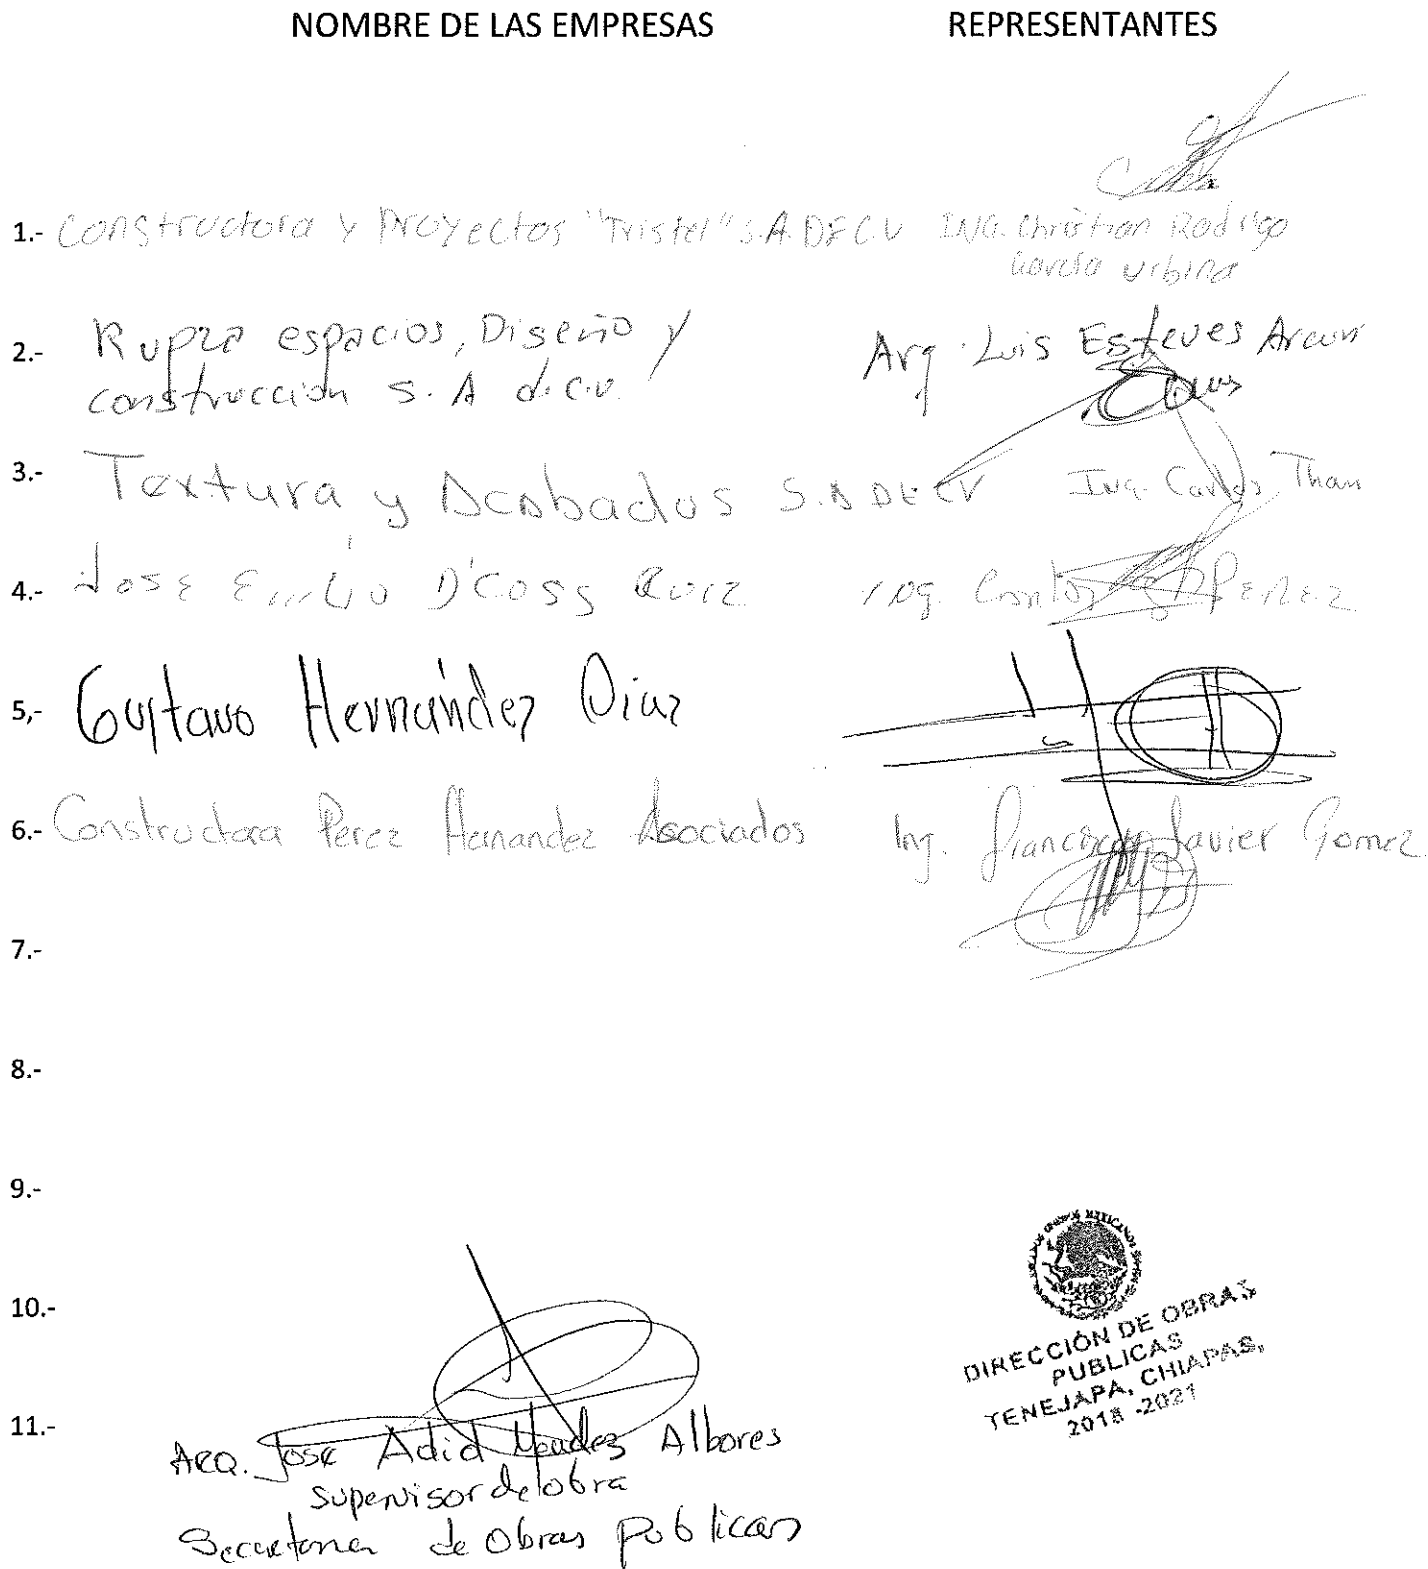 NOMBRE DE LAS EMPRESAS REPRESENTANTES
1.- Constructora y Proyectos "Tristel" S.A. DE C.V ING. Christian Rodrigo
Garcia Urbina
2.- Rupza espacios, Diseño y Arq. Luis Esteves
construcción S.A d.c.v.
3.- Textura y Acabados S.A DE CV Ing. Carlos Tham
4.- Jose Emilio D'Coss Ruiz Ing. Carlos Perez
5,- Gustavo Hernández Diaz
6.- Constructora Perez Hernandez Asociados Ing. Francisco Javier Gomez
7.-
8.-
9.-
10.-
11.-
ARQ. Jose Adid Mendez Albores
Supervisor de obra
Secretaria de Obras publicas
DIRECCIÓN DE OBRAS
PUBLICAS
TENEJAPA, CHIAPAS,
2018 -2021